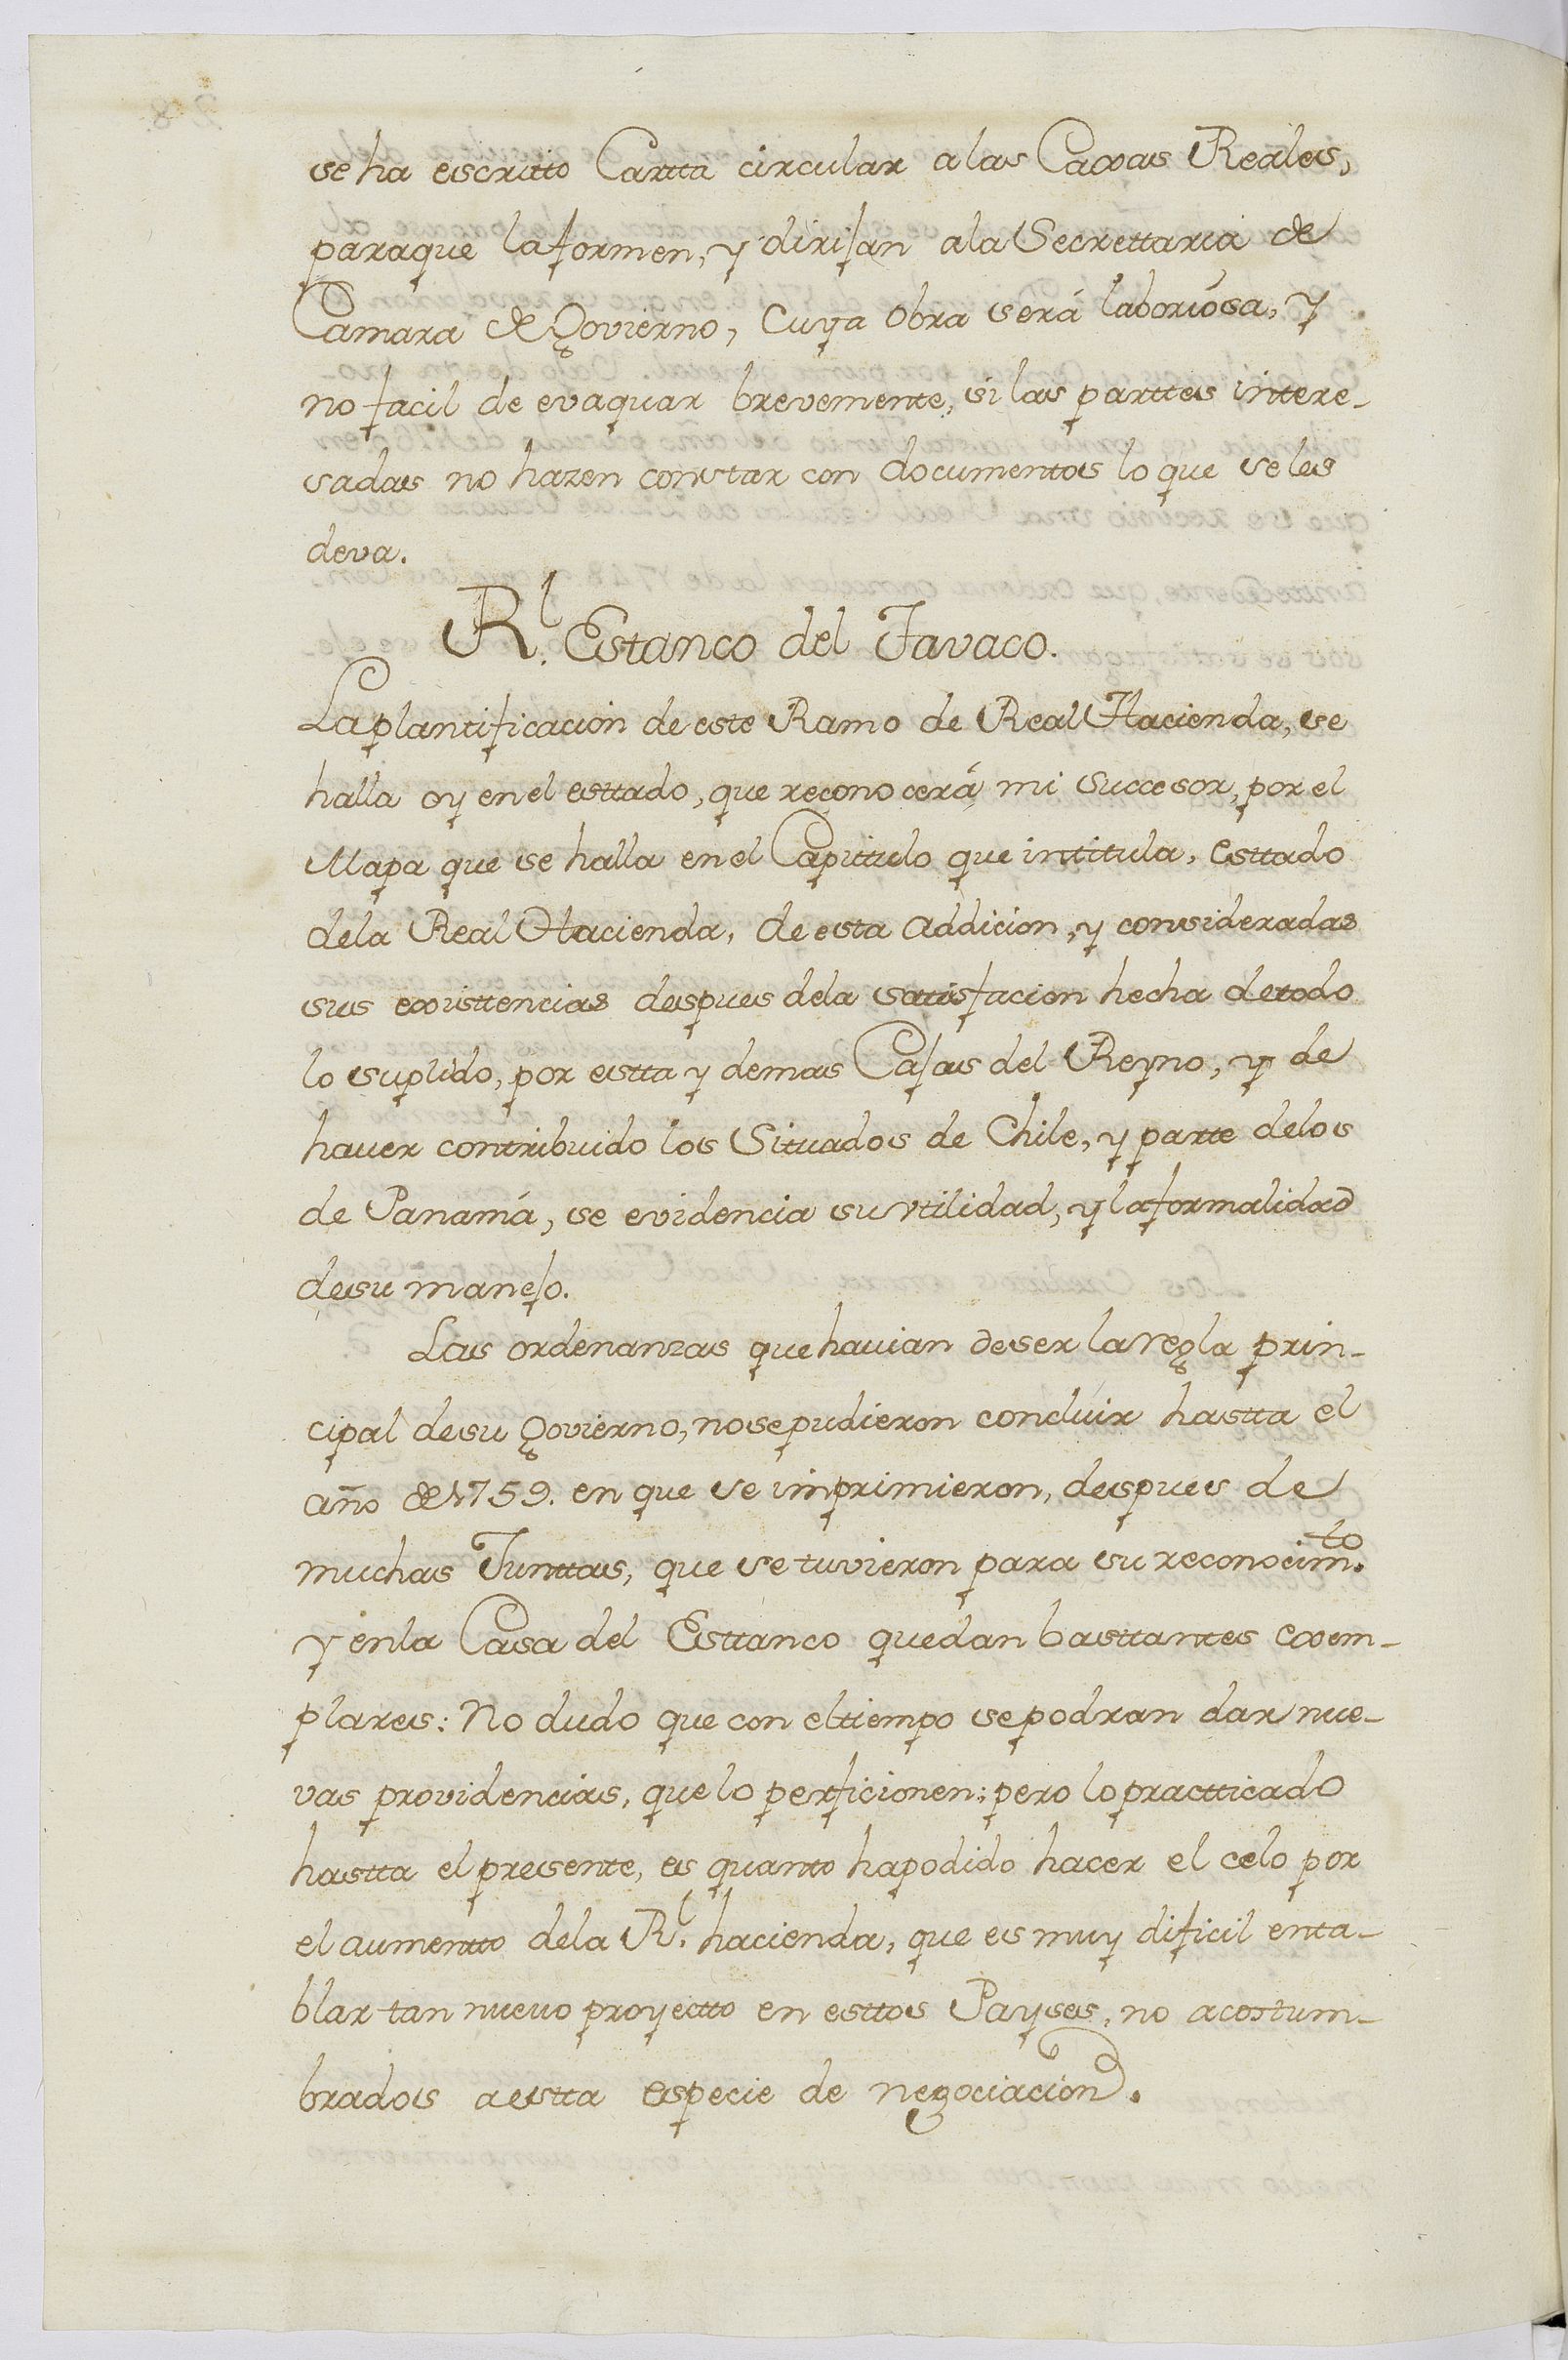 se ha escritto Cartta circular a las Caxas Reales,
paraque la formen, y dirijan a la Secrettaria de
Camara de Govierno, Cuya obra será laboriosa, y
no facil de evaquar brevemente, si las parttes intere-
sadas no hazen constar con documentos lo que se les
deva.
Rl. Estanco del Tavaco.
La plantificacion de este Ramo de Real Hacienda, se
halla oy en el esttado, que reconocerá mi Succesor, por el
Mapa que se halla en el Capittulo que intitula, Esttado
dela Real Hacienda, de esta addicion, y consideradas
sus existtencias despues dela satisfacion hecha detodo
lo suplido, por estta y demas Cajas del Reyno, y de
haver contribuido los Situados de Chile, y parte delos
de Panamá, se evidencia su vtilidad, y la formalidad
desu manejo.
Las ordenanzas que havian deser la regla prin-
cipal desu Govierno, no se pudieron concluir hastta el
año de 1759. en que se imprimieron, despues de
muchas Junttas, que se tuvieron para su reconocim.to
y enla Casa del Esttanco quedan basttantes exem-
plares: No dudo que con el tiempo se podran dar nue-
vas providencias, que lo perficionen; pero lo practticado
hastta el presente, es quanto ha podido hacer el celo por
el aumentto dela Rl. hacienda, que es muy dificil enta-
blar tan nuevo proyectto en esttos Payses, no acostum-
brados a estta especie de negociacion.